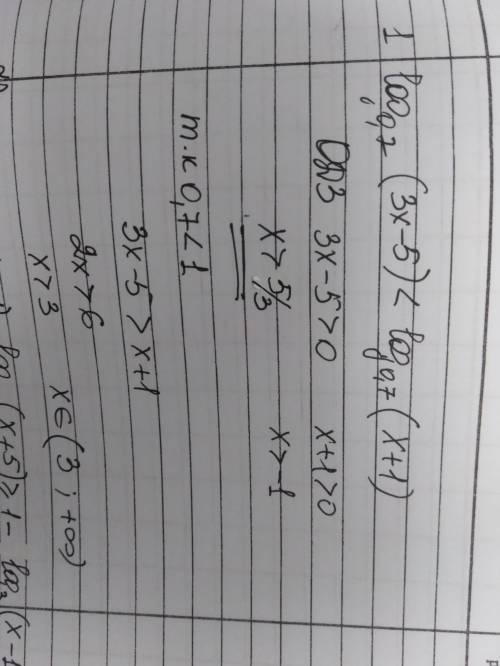 1 log₀,₇ (3x-5) < log₀,₇ (x+1)
ОДЗ 3x-5>0 x+1>0
x> 5/3 x>-1
т.к 0,7<1
3x-5 > x+1
2x > 6
x>3 x∈(3 ; +∞)
log (x+5) ≥ 1 - log₃ (x-1